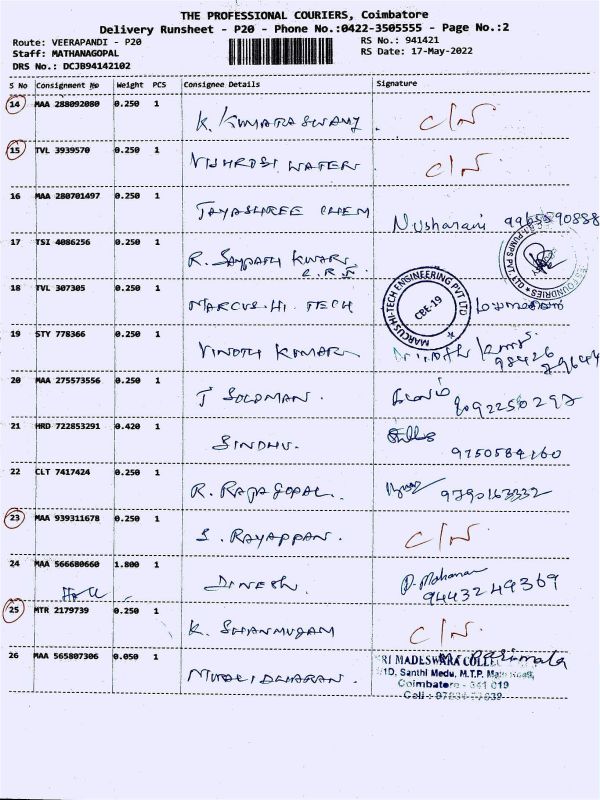 THE PROFESSIONAL COURIERS, Coimbatore
Delivery Runsheet - P20 - Phone No.:0422-3505555 - Page No.:2
Route: VEERAPANDI - P20 RS No.: 941421
Staff: MATHANAGOPAL RS Date: 17-May-2022
DRS No.: DCJB94142102
S No Consignment No Weight PCS Consignee Details Signature
14 MAA 288092080 0.250 1 K. KUMARASWAMY. C/N
15 TVL 3939570 0.250 1 WATER C/N
16 MAA 280701497 0.250 1 JAYASHREE CHEM Nusharani
17 TSI 4086256 0.250 1 R. SAMPATH KUMAR
18 TVL 307305 0.250 1 MARCUS HI TECH MARCUS HI-TECH ENGINEERING PVT LTD CBE-19
19 STY 778366 0.250 1 VINOTH KUMAR 98426
20 MAA 275573556 0.250 1 J SOLOMAN. 8092250297
21 HRD 722853291 0.420 1 SINDHU. 9750584160
22 CLT 7417424 0.250 1 R. RAJAGOPAL. 9790163332
23 MAA 939311678 0.250 1 S. RAYAPPAN. C/N
24 MAA 566680660 1.800 1 DINESH. P. Mohanan
9443249369
25 MTR 2179739 0.250 1 K. SHANMUGAM C/N
26 MAA 565807306 0.050 1 MURALIDHARAN. Parimala
SRI MADESWARA
Santhi Medu, M.T.P. Main Road,
Coimbatore - 641 019
Cell :